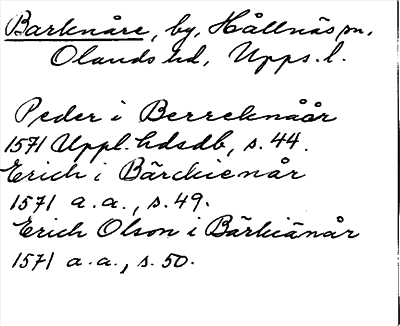 Barknåre, by, Hållnäs sn,
Olands hd, Upps. l.
Peder i Berreknåår
1571 Uppl. hdsdb, s. 44.
Erich i Bärckienår
1571 a. a., s. 49.
Erich Olson i Bärkiänår
1571 a. a., s. 50.